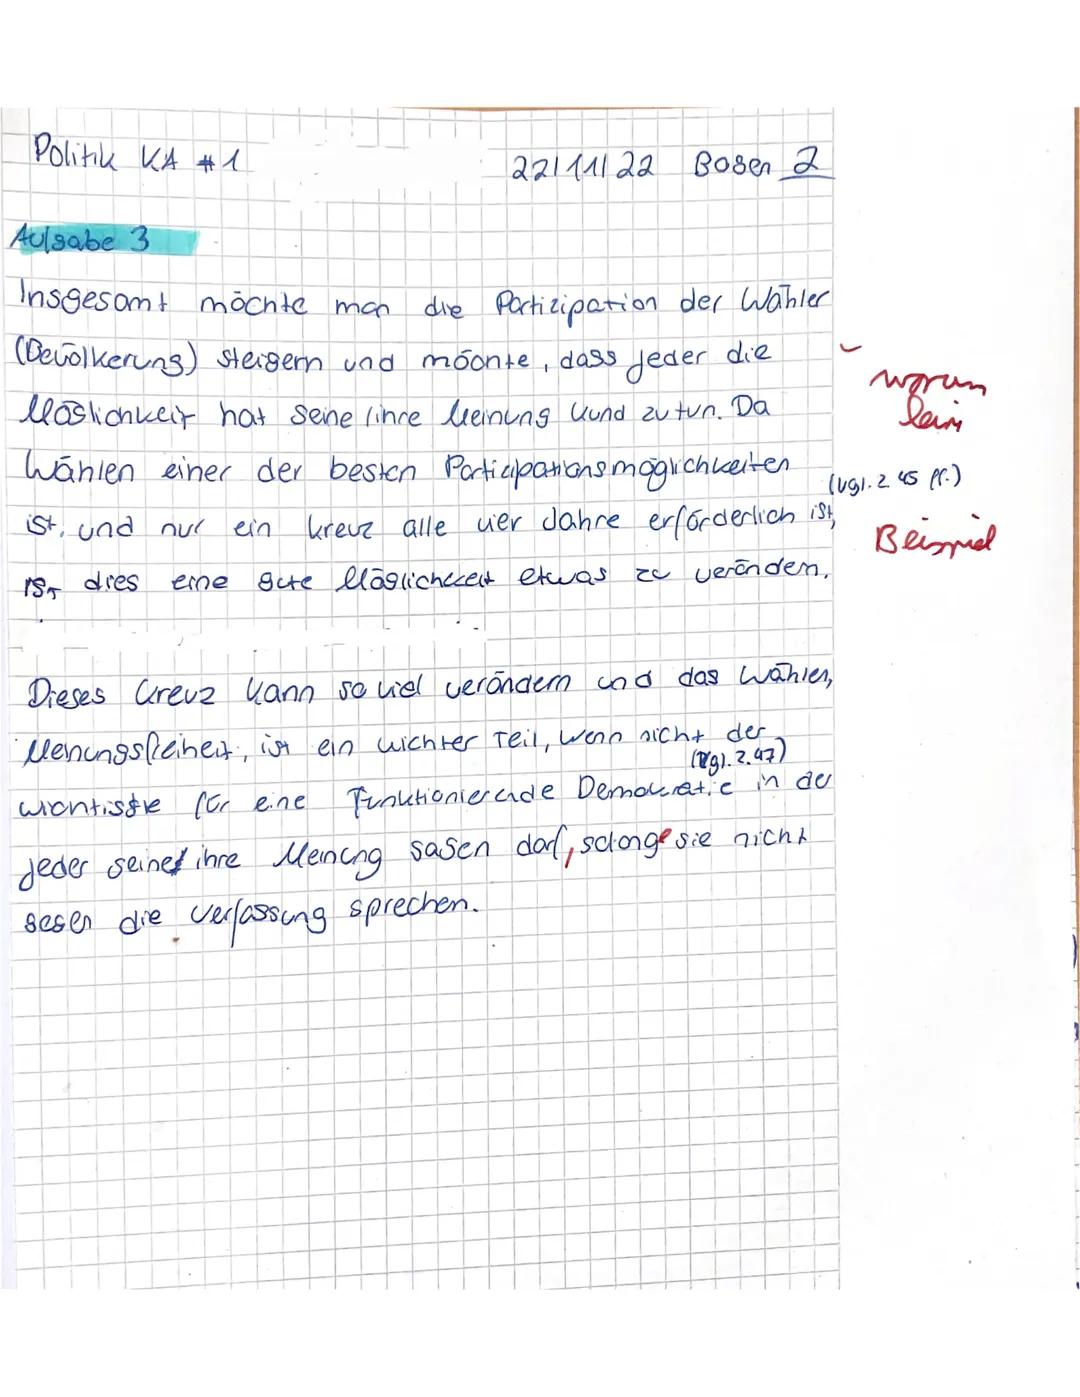 Politik KA #1 22/11/22 Bogen 2
Aufgabe 3
Insgesamt möchte man die Partizipation der Wähler
(Bevölkerung) steigern und möchte, dass jeder die
Möglichkeit hat seine/ihre Meinung kund zu tun. Da
Wählen einer der besten Partizipationsmöglichkeiten
(vgl. Z 45 ff.)
ist, und nur ein kreuz alle vier Jahre erforderlich ist,
ist dies eine gute Möglichkeit etwas zu verändern.
Beispiel
Dieses Kreuz kann so viel verändern und das Wählen,
Meinungsfreiheit, ist ein wichter Teil, wenn nicht der
(vgl. Z. 47)
wichtigste für eine Funktionierende Demokratie in der
jeder seine/ihre Meinung sagen darf, solange sie nicht
gegen die Verfassung sprechen.